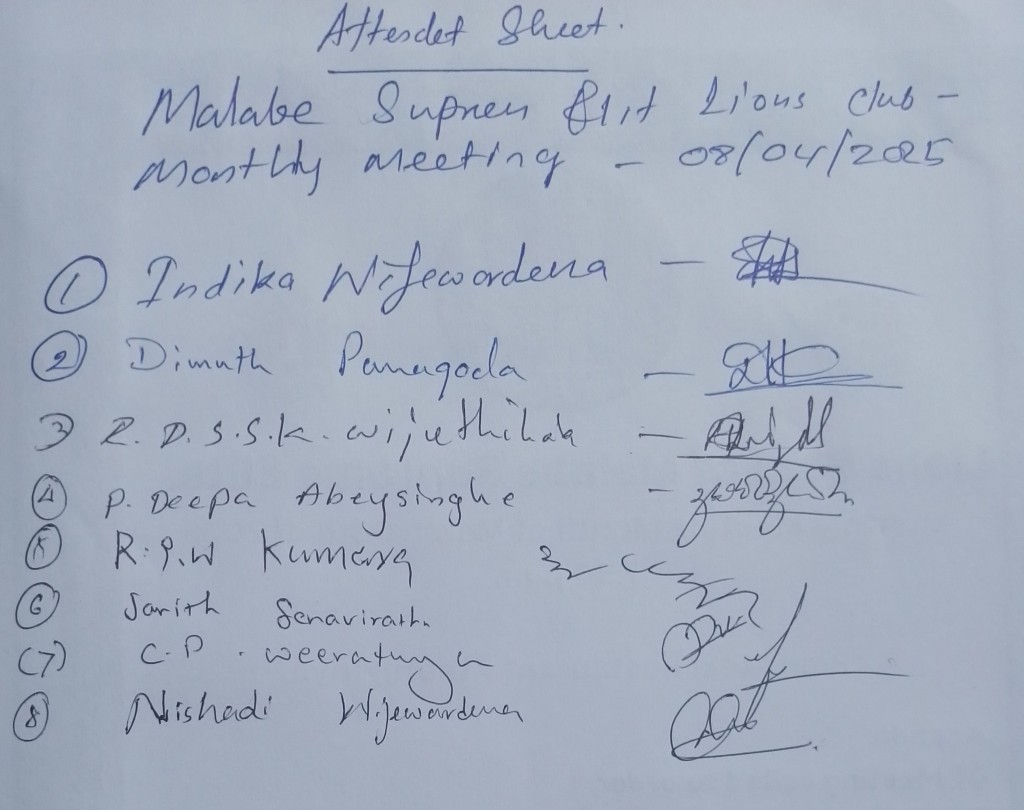 Attesdet Sheet.
Malabe Supreu Elit Lious club -
Monthly meeting - 08/04/2025
① Indika Wijewardena -
② Dimuth Panagoda -
3 R. D. S. S. K. wijethilak -
④ P. Deepa Abeysinghe -
⑤ R. P. W Kumara
⑥ Sarith Senavirath
(7) C. P. weeratunga
⑧ Nishadi Wijewardena